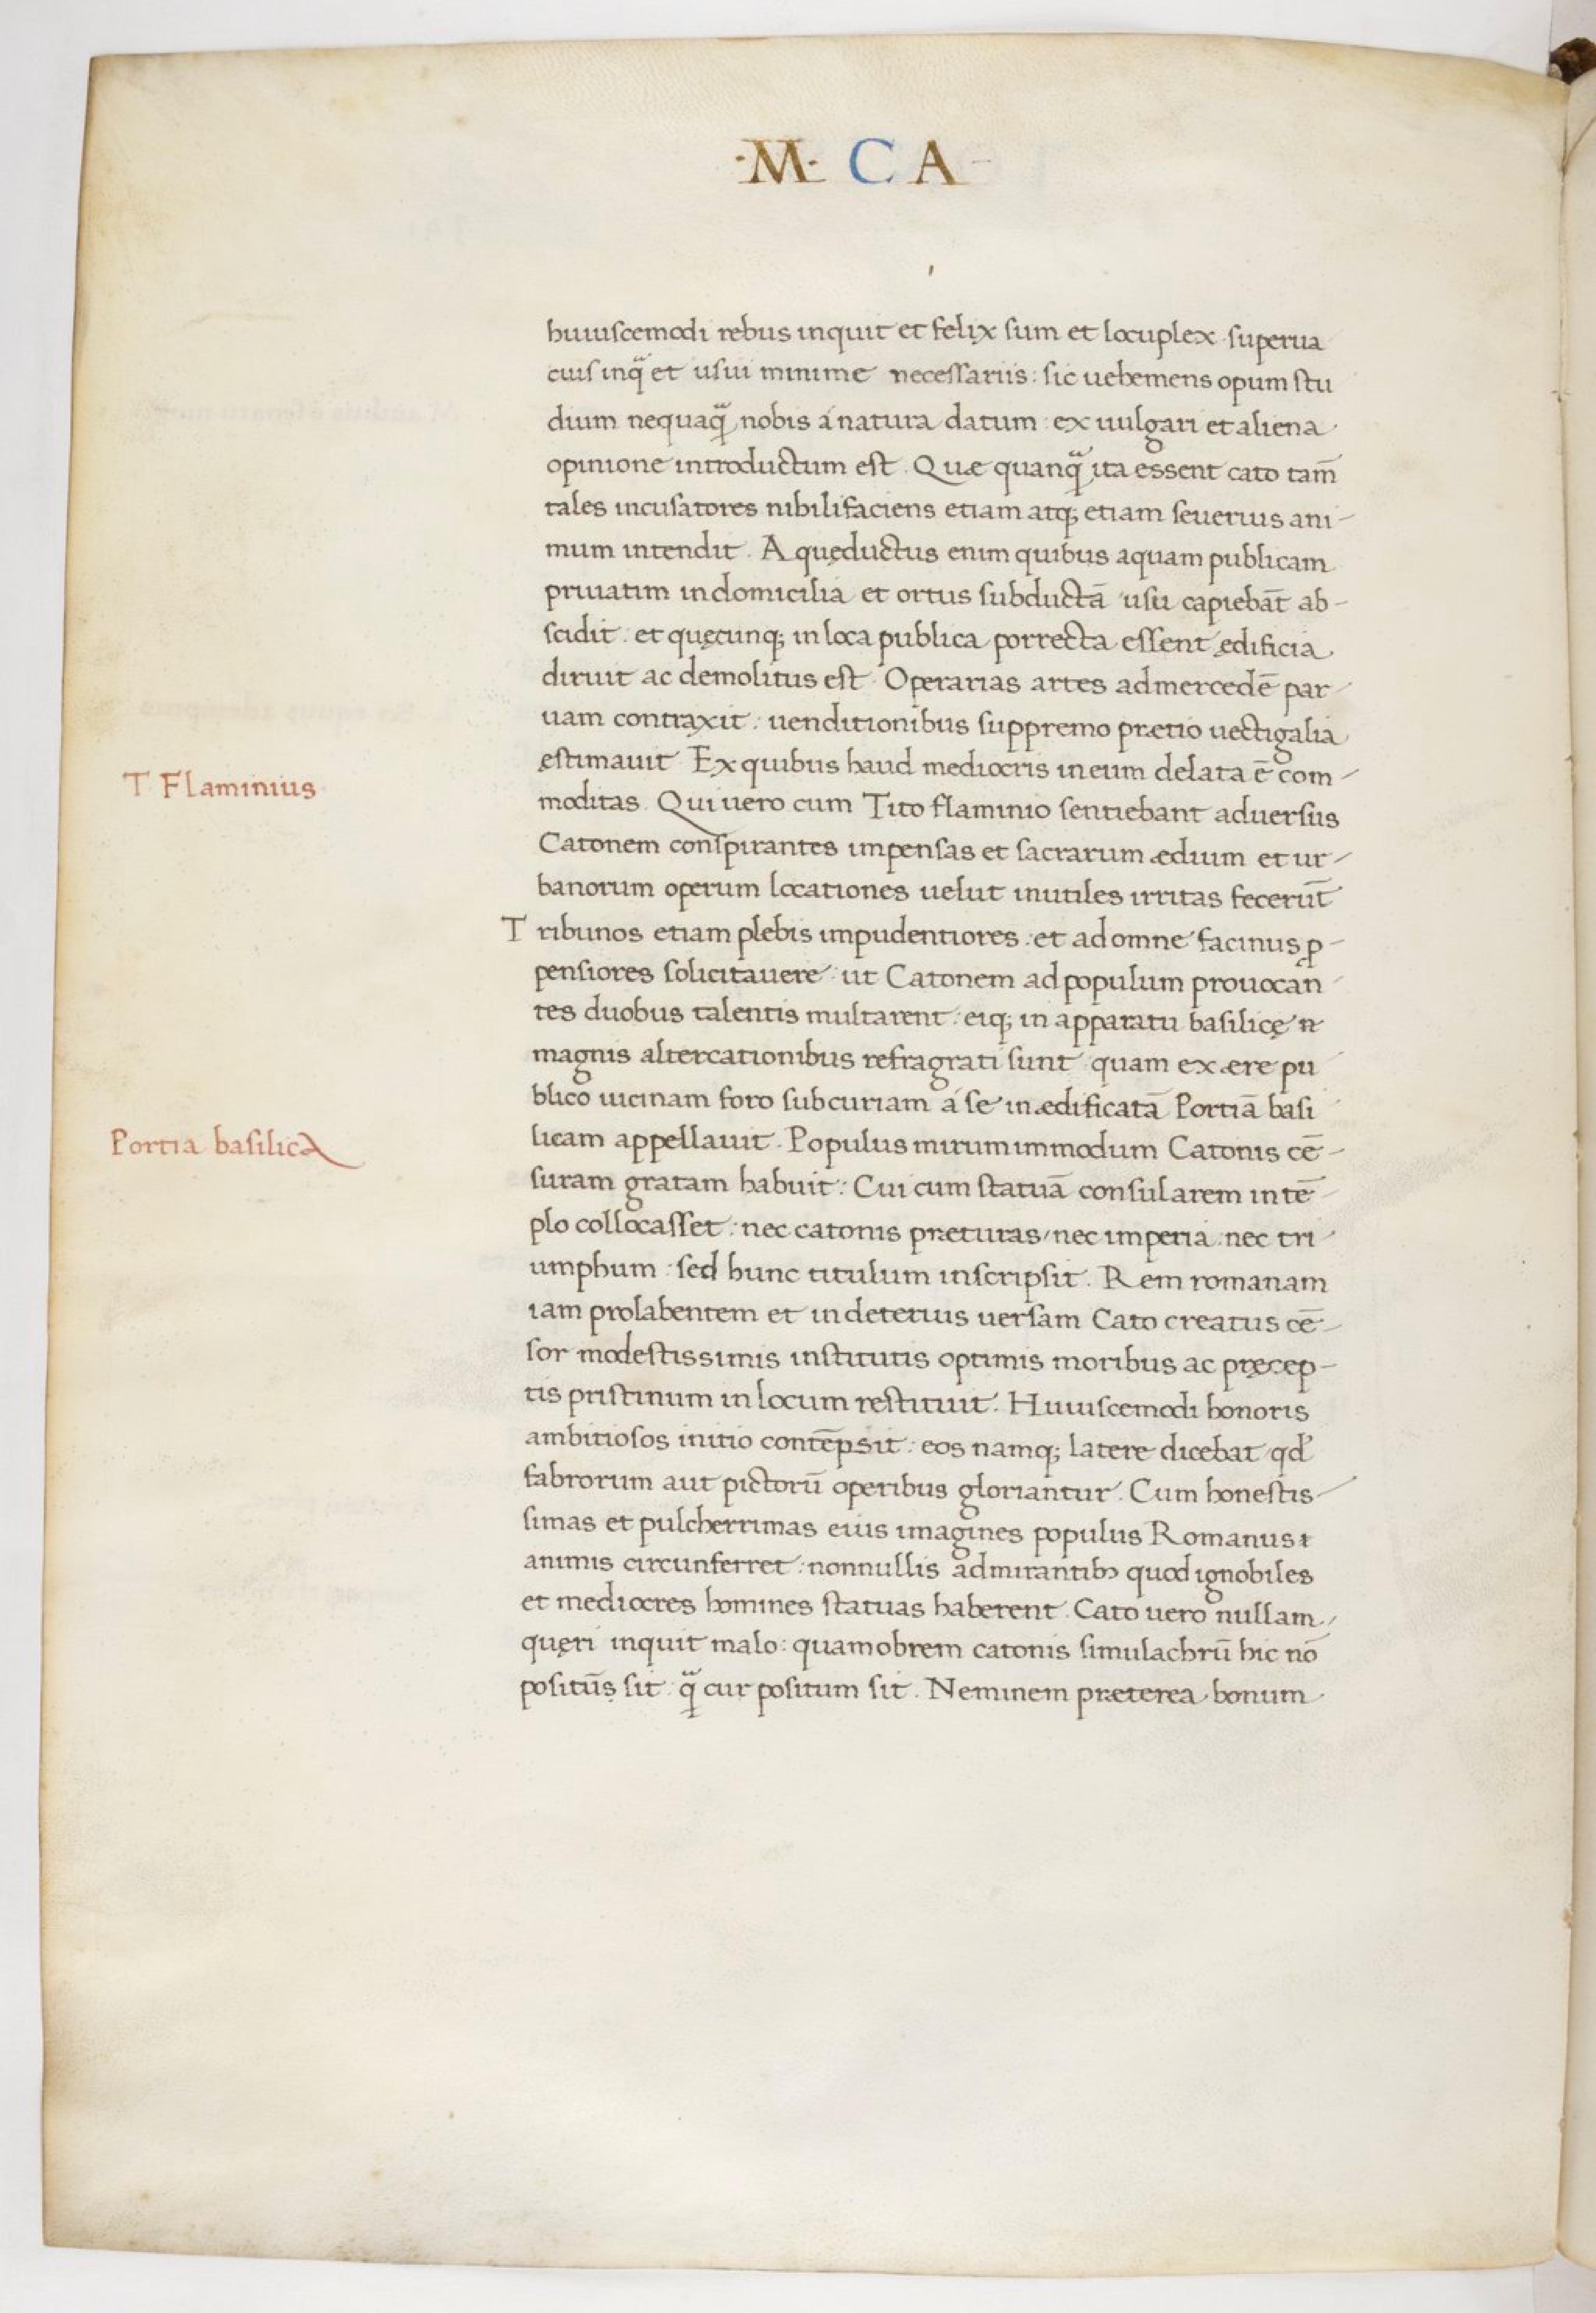 ·M· C A-
huiuscemodi rebus inquit et felix sum et locuplex superua
cuis inq̃ et usui minime necessariis: sic uehemens opum stu
dium nequaq̃ nobis á natura datum: ex uulgari et aliena
opinione introductum est. Quæ quanq̃ ita essent cato tam̄
tales incusatores nihilifaciens etiam atq; etiam seuerius ani-
mum intendit. Aquęductus enim quibus aquam publicam
priuatim in domicilia et ortus subductā usu capiebāt ab-
scidit: et quęcunq; in loca publica porrecta essent ędificia
diruit ac demolitus est. Operarias artes ad mercedē par-
uam contraxit: uenditionibus suppremo prætio uectigalia
ęstimauit. Ex quibus haud mediocris in eum delata ē com-
T Flaminius
moditas. Qui uero cum Tito flaminio sentiebant aduersus
Catonem conspirantes impensas et sacrarum ædium et ur-
banorum operum locationes uelut inutiles irritas fecerūt
Tribunos etiam plebis impudentiores: et ad omne facinus ꝓ-
pensiores solicitauere: ut Catonem ad populum prouocan
tes duobus talentis multarent: eiq; in apparatu basilicę n̄
magnis altercationibus refragrati sunt quam ex ære pu
blico uicinam foro sub curiam á se inædificatā Portiā basi
Portia basilica
licam appellauit. Populus mirum immodum Catonis cē-
suram gratam habuit: Cui cum statuā consularem in tē-
plo collocasset: nec catonis præturas/nec imperia: nec tri
umphum: sed hunc titulum inscripsit. Rem romanam
iam prolabentem et in deterius uersam Cato creatus cē-
sor modestissimis institutis optimis moribus ac pręcep-
tis pristinum in locum restituit. Huiuscemodi honoris
ambitiosos initio contēpsit: eos namq; latere dicebat qd'
fabrorum aut pictorū operibus gloriantur. Cum honestis-
simas et pulcherrimas eius imagines populus Romanus ī
animis circunferret: nonnullis admirantibꝫ quod ignobiles
et mediocres homines statuas haberent. Cato uero nullam
quęri inquit malo: quamobrem catonis simulachrū hic nō
positūs sit: q̃ cur positum sit. Neminem præterea bonum